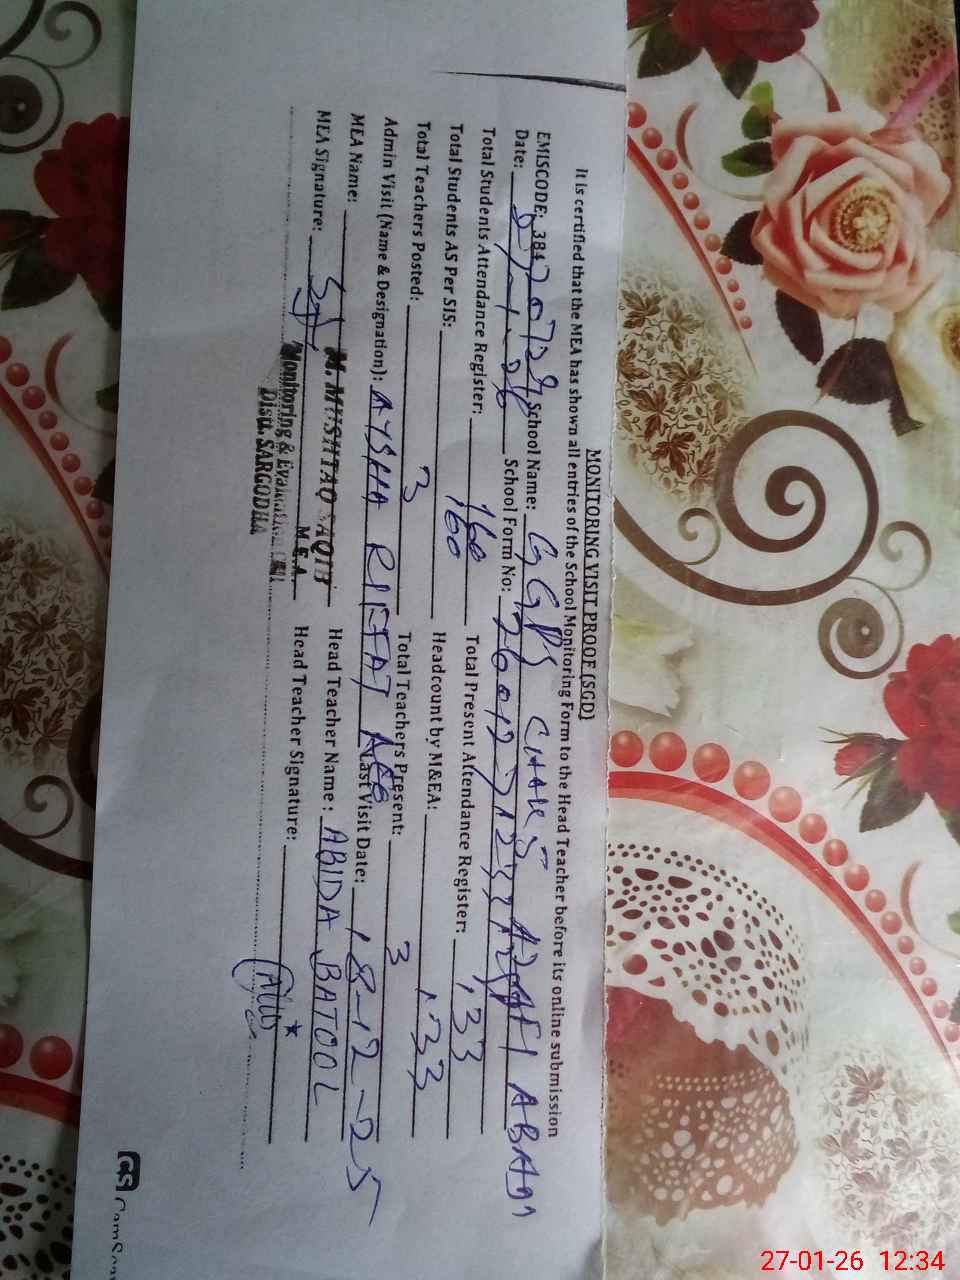 MONITORING VISIT PROOF (SGD)
It is certified that the MEA has shown all entries of the School Monitoring Form to the Head Teacher before its online submission
EMISCODE: 384 School Name: GGPS CHAK 5 ABADI
Date: 27-1-26 School Form No:
Total Students Attendance Register: 160 Total Present Attendance Register: 133
Total Students AS Per SIS: 160 Headcount by M&EA: 133
Total Teachers Posted: 3 Total Teachers Present: 3
Admin Visit (Name & Designation): AYSHA RIFFAT AEO Last Visit Date: 18-12-25
MEA Name: M. MUSHTAQ SAQIB Head Teacher Name: ABIDA BATOOL
M.E.A.
MEA Signature: Head Teacher Signature:
Monitoring & Evaluation Cell
Distt. SARGODHA
CS CamScan
27-01-26 12:34